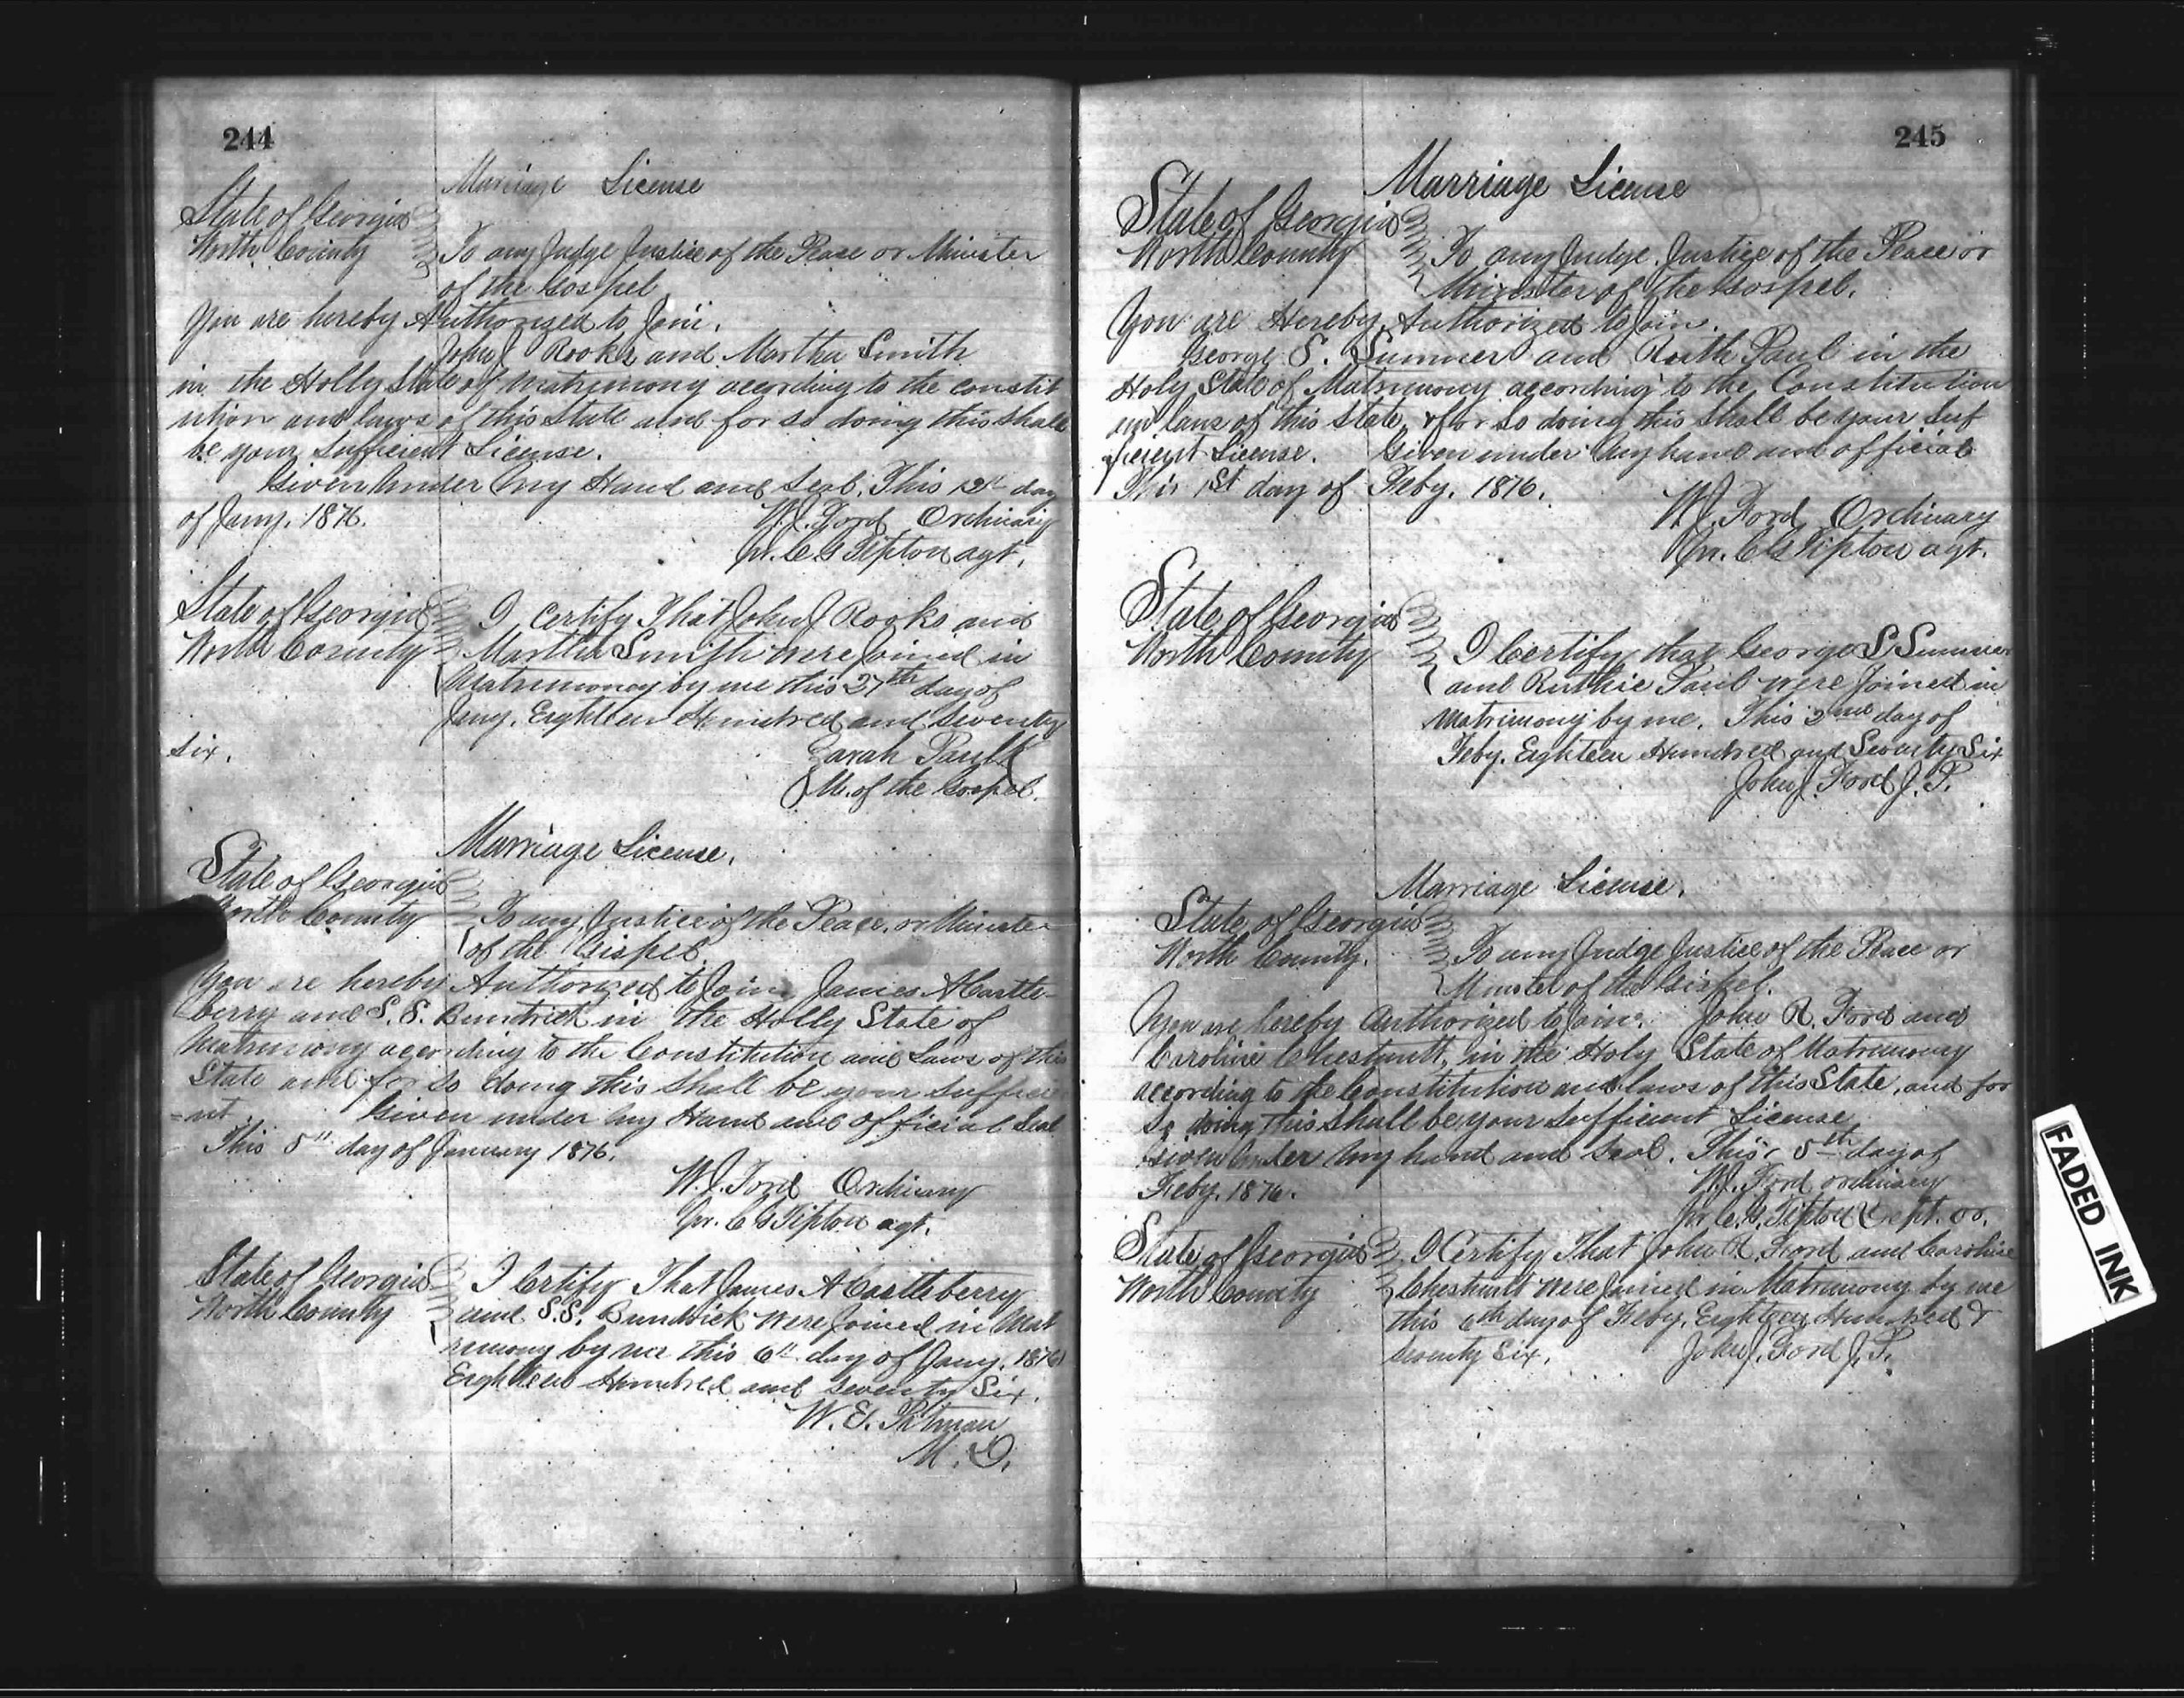 244
Marriage License
State of Georgia
Worth County
To any Judge Justice of the Peace or Minister
of the Gospel
You are hereby Authorized to Join.
John J Rooks and Martha Smith
in the Holly State of Matrimony according to the constit
ution and laws of this State and for so doing this shall
be your sufficient License.
Given Under My Hand and Seal. This 12th day
of Jany. 1876.
W.J. Ford Ordinary
pr. C G Tipton agt.
State of Georgia
Worth County
I, Certify That John J Rooks and
Martha Smith were Joined in
Matrimoney by me this 27th day of
Jany. Eighteen Hundred and Seventy
six.
M. of the Gospel.
Marriage License.
State of Georgia
Worth County
To any Justice of the Peace, or Minister
of the Gospel
You are hereby Authorized to Join James A Castle
berry and S. S. Bundrick in the Holly State of
Matrimony according to the Constitution and Laws of this
State and for so doing this shall be your suffici
=nt. Given under my Hand and official Seal
This 5th day of January 1876.
W.J. Ford Ordinary
pr. C G Tipton agt.
State of Georgia
Worth County
I Certify That James A Castleberry
and S.S. Bundrick were Joined in Mat
rimony by me this 6th day of Jany. 1876
Eighteen Hundred and seventy Six.
W. E. Pitman
M. G.
245
Marriage License
State of Georgia
Worth County
To any Judge Justice of the Peace or
Minister of the Gospel.
You are Hereby Authorized to Join.
George S. Sumner and Ruth Paul in the
Holy State of Matrimony according to the Constitution
an laws of this State, & for so doing this shall be your Suf
ficient License. Given under my hand and official
This 1st day of Feby. 1876.
W.J. Ford Ordinary
pr. C G Tipton agt.
State of Georgia
Worth County
I Certify that George S Sumner
and Ruthie Paul were Joined in
Matrimony by me. This 2nd day of
Feby. Eighteen Hundred and Seventy Six
John J. Ford J. P.
Marriage License.
State of Georgia
Worth County.
To any Judge Justice of the Peace or
Minister of the Gospel.
You are hereby Authorized to Join. John R. Ford and
Caroline Chestnutt, in the Holy State of Matrimony
according to the Constitution and laws of this State, and for
So doing this shall be your sufficient License
Given Under My hand and Seal. This 5th day of
Feby. 1876.
W.J. Ford ordinary
pr C.G. Tipton Dept. or.
State of Georgia
Worth County
I Certify That John R. Ford and Caroline
Chestnutt were Joined in Matrimony by me
this 6th day of Feby. Eighteen Hundred &
seventy six.
John J. Ford J.P.
FADED INK